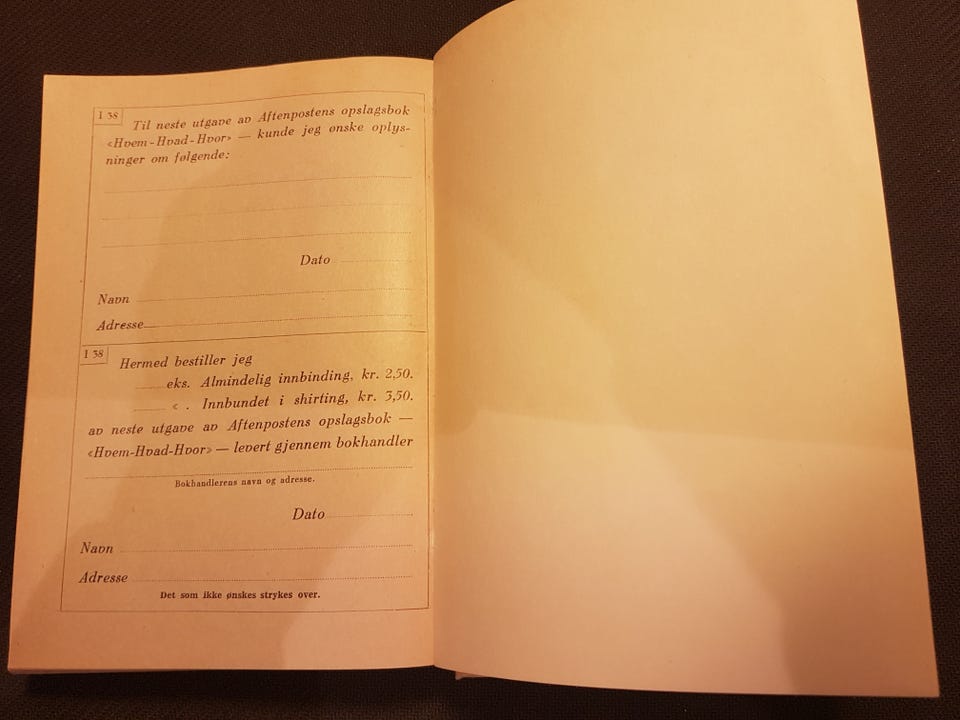 I 38
Til neste utgave av Aftenpostens opslagsbok
«Hvem-Hvad-Hvor» — kunde jeg ønske oplys-
ninger om følgende:
Dato
Navn
Adresse
I 38
Hermed bestiller jeg
eks. Almindelig innbinding, kr. 2,50.
« . Innbundet i shirting, kr. 3,50.
av neste utgave av Aftenpostens opslagsbok —
«Hvem-Hvad-Hvor» — levert gjennem bokhandler
Bokhandlerens navn og adresse.
Dato
Navn
Adresse
Det som ikke ønskes strykes over.